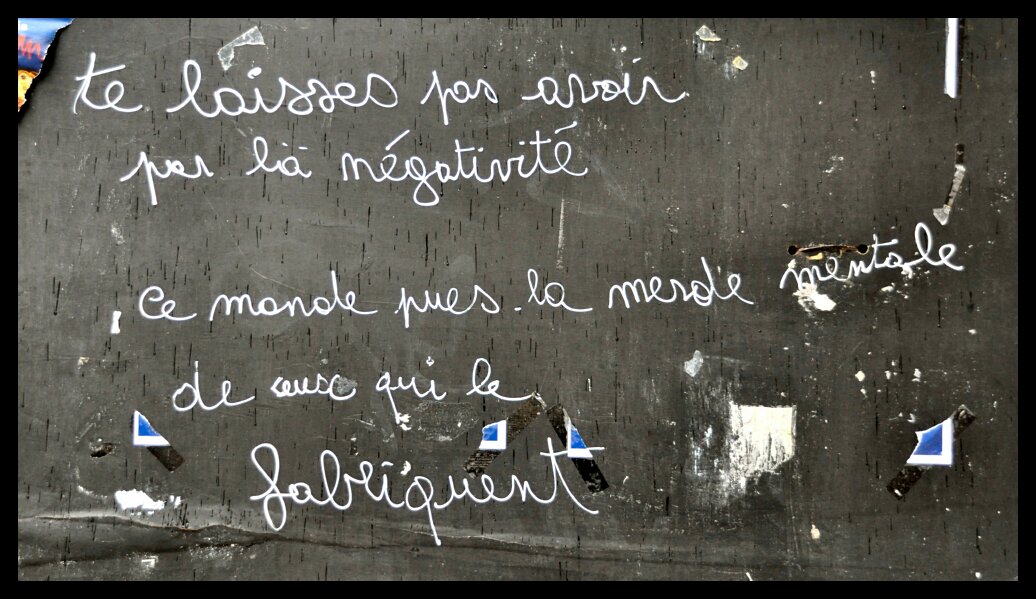 te laisses pas avoir
par la négativité
ce monde pues la merde mentale
de ceux qui le
fabriquent